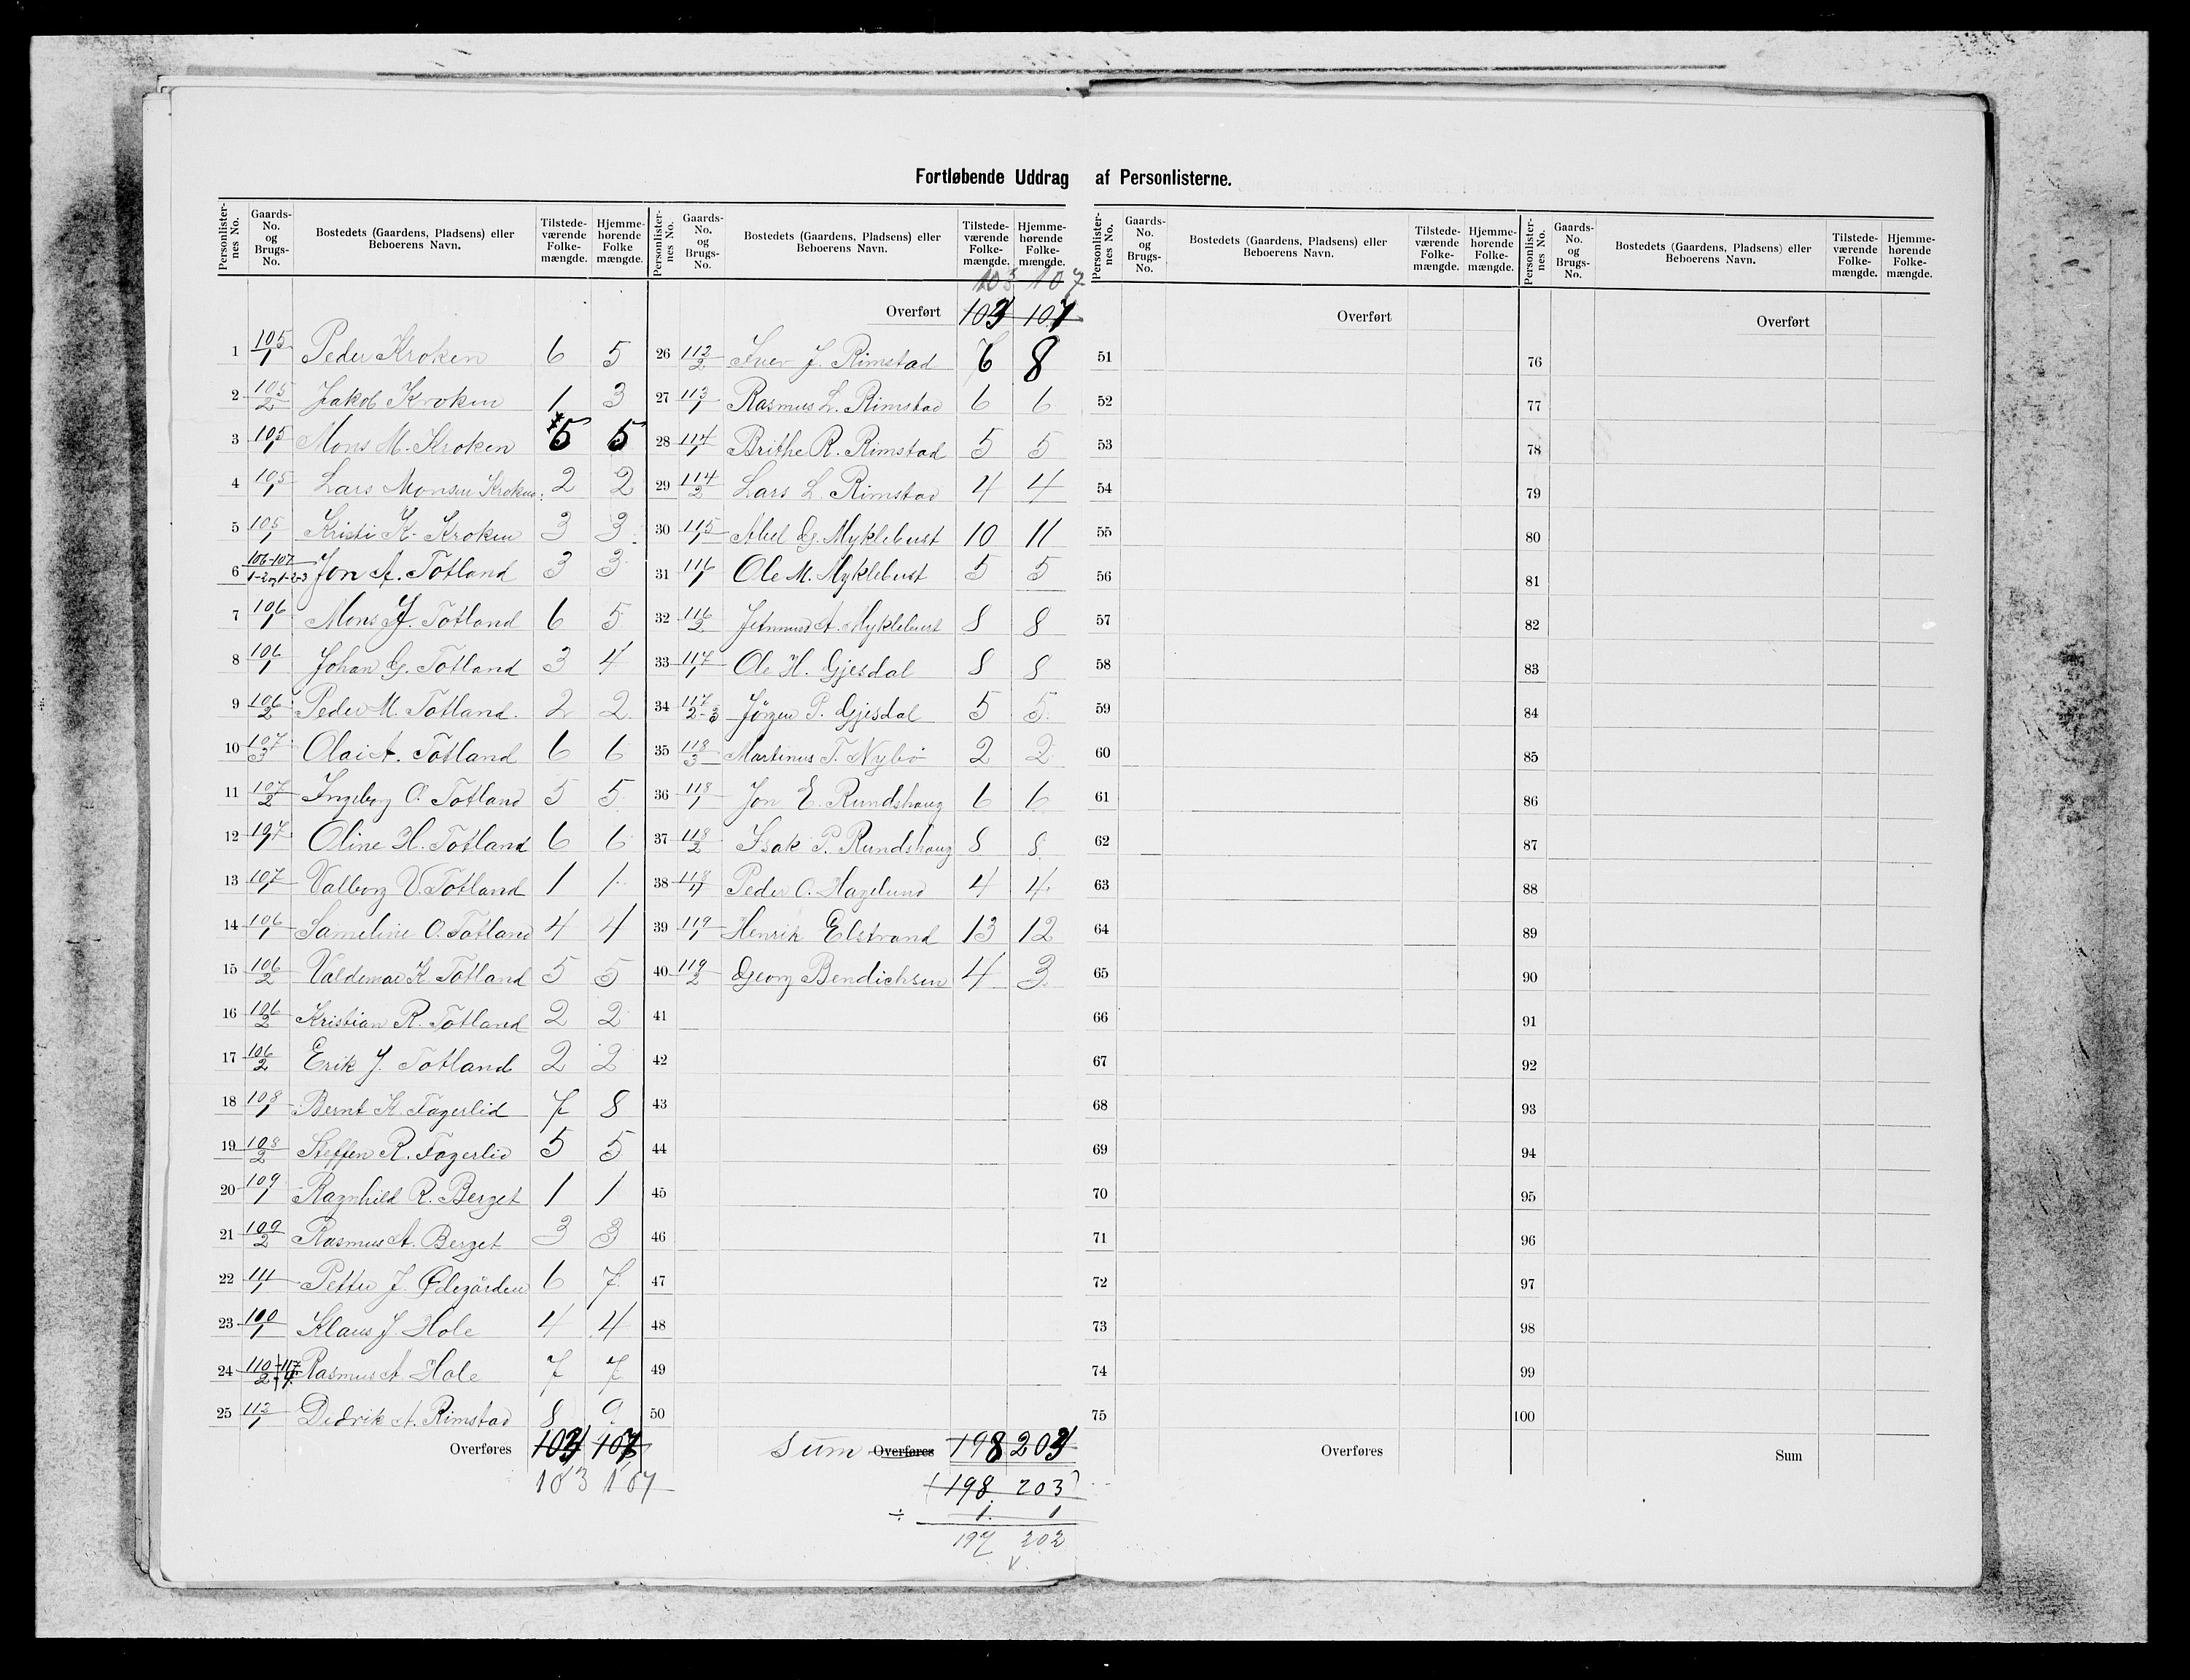 Fortløbende Uddrag af Personlisterne.
Personlisternes No. Gaards-No. og Brugs-No. Bostedets (Gaardens, Pladsens) eller Beboerens Navn. Tilstedeværende Folkemængde. Hjemmehørende Folkemængde.
1 105/1 Peder Kroken 6 5
2 105/2 Jakob Kroken 1 3
3 105/1 Mons M. Kroken 5 5
4 105/1 Lars Monsen Kroken 2 2
5 105/1 Kristi K. Kroken 3 3
6 106-107 Jon A. Totland 3 3
7 106/1 Mons J. Totland 6 5
8 106/1 Johan G. Totland 3 4
9 106/2 Peder M. Totland. 2 2
10 107/3 Olai A. Totland 6 6
11 107/2 Ingeborg O. Totland 5 5
12 107/1 Oline H. Totland 6 6
13 107/1 Valborg V. Totland 1 1
14 106/1 Sameline O. Totland 4 4
15 106/2 Valdemar K Totland 5 5
16 106/2 Kristian R. Totland 2 2
17 106/2 Erik J. Totland 2 2
18 108/1 Bernt K. Fagerlid 7 8
19 108/2 Steffen R. Fagerlid 5 5
20 109/1 Ragnhild R. Berget 1 1
21 109/2 Rasmus A. Berget 3 3
22 111/1 Petter J. Ødegården 6 7
23 Klaus J. Hole 4 4
24 Rasmus A. Hole 7 7
25 112/1 Didrik A. Rimstad 8 9
Overføres 103 107
103 107
Personlisternes No. Gaards-No. og Brugs-No. Bostedets (Gaardens, Pladsens) eller Beboerens Navn. Tilstedeværende Folkemængde. Hjemmehørende Folkemængde.
103 107
Overført 103 107
26 112/2 Iver J. Rimstad 6 8
27 113/1 Rasmus L. Rimstad 6 6
28 114/1 Brithe R. Rimstad 5 5
29 114/2 Lars L. Rimstad 4 4
30 115/1 Abel G. Myklebust 10 11
31 116/1 Ole M. Myklebust 5 5
32 116/2 A. Myklebust 8 8
33 117/1 Ole H. Gjesdal 8 8
34 117/2-3 Jörgen P. Gjesdal 5 5
35 118/3 Martinus T. Nybö 2 2
36 118/1 Jon E. Rundshaug 6 6
37 118/2 Isak P. Rundshaug 8 8
38 118/4 Peder O. Hagelund 4 4
39 119/1 Henrik Elstrand 13 12
40 119/2 Georg Bendichsen 4 3
41
42
43
44
45
46
47
48
49
50
Sum Overføres 198 203
(198 203)
÷ 1. 1
197 202
v
Personlisternes No. Gaards-No. og Brugs-No. Bostedets (Gaardens, Pladsens) eller Beboerens Navn. Tilstedeværende Folkemængde. Hjemmehørende Folkemængde.
Overført
51
52
53
54
55
56
57
58
59
60
61
62
63
64
65
66
67
68
69
70
71
72
73
74
75
Overføres
Personlisternes No. Gaards-No. og Brugs-No. Bostedets (Gaardens, Pladsens) eller Beboerens Navn. Tilstedeværende Folkemængde. Hjemmehørende Folkemængde.
Overført
76
77
78
79
80
81
82
83
84
85
86
87
88
89
90
91
92
93
94
95
96
97
98
99
100
Sum